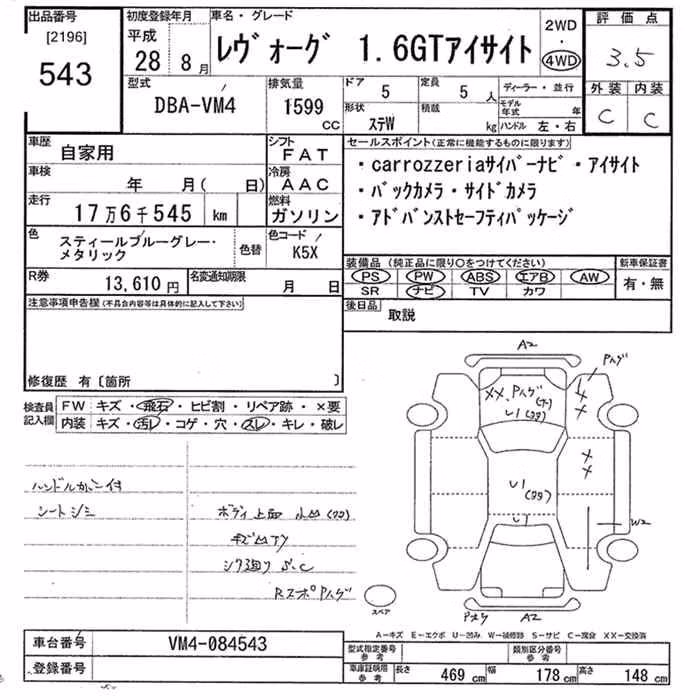 出品番号
[2196]
543
初度登録年月
平成
28 8月
車名・グレード
レヴォーグ 1.6GTアイサイト
2WD
・
4WD
評価点
3.5
外装 内装
C C
型式
DBA-VM4
排気量
1599
cc
ドア
5
定員
5 人
形状
ステW
積載
kg
ディーラー・並行
モデル年式 年
ハンドル 左・右
車歴
自家用
シフト
FAT
車検
年 月( 日)
冷房
AAC
走行
17万6千545 km
燃料
ガソリン
色
スティールブルーグレー・メタリック
色替
色コード
K5X
R券
13,610 円
名変通知期限
月 日
セールスポイント(正常に機能するものに限ります)
・carrozzeriaサイバーナビ・アイサイト
・バックカメラ・サイドカメラ
・アドバンストセーフティパッケージ
装備品(純正品に限り○をつけてください)
PS PW ABS エアB AW
SR ナビ TV カワ
新車保証書
有・無
後日品
取説
注意事項申告欄(不具合内容等は具体的に記入して下さい)
修復歴 有〔箇所 〕
検査員記入欄
FW キズ・飛石・ヒビ割・リペア跡・×要
内装 キズ・汚レ・コゲ・穴・スレ・キレ・破レ
シートシミ
ボディ上面 小凹(多数)
A2
XX
U1
U1
W2
A2
スペア
A-キズ E-エクボ U-凹み W-補修跡 S-サビ C-腐食 XX-交換済
車台番号
VM4-084543
登録番号
型式指定番号
参考
類別区分番号
参考
車庫証明用
参考
長さ 469 cm 幅 178 cm 高さ 148 cm